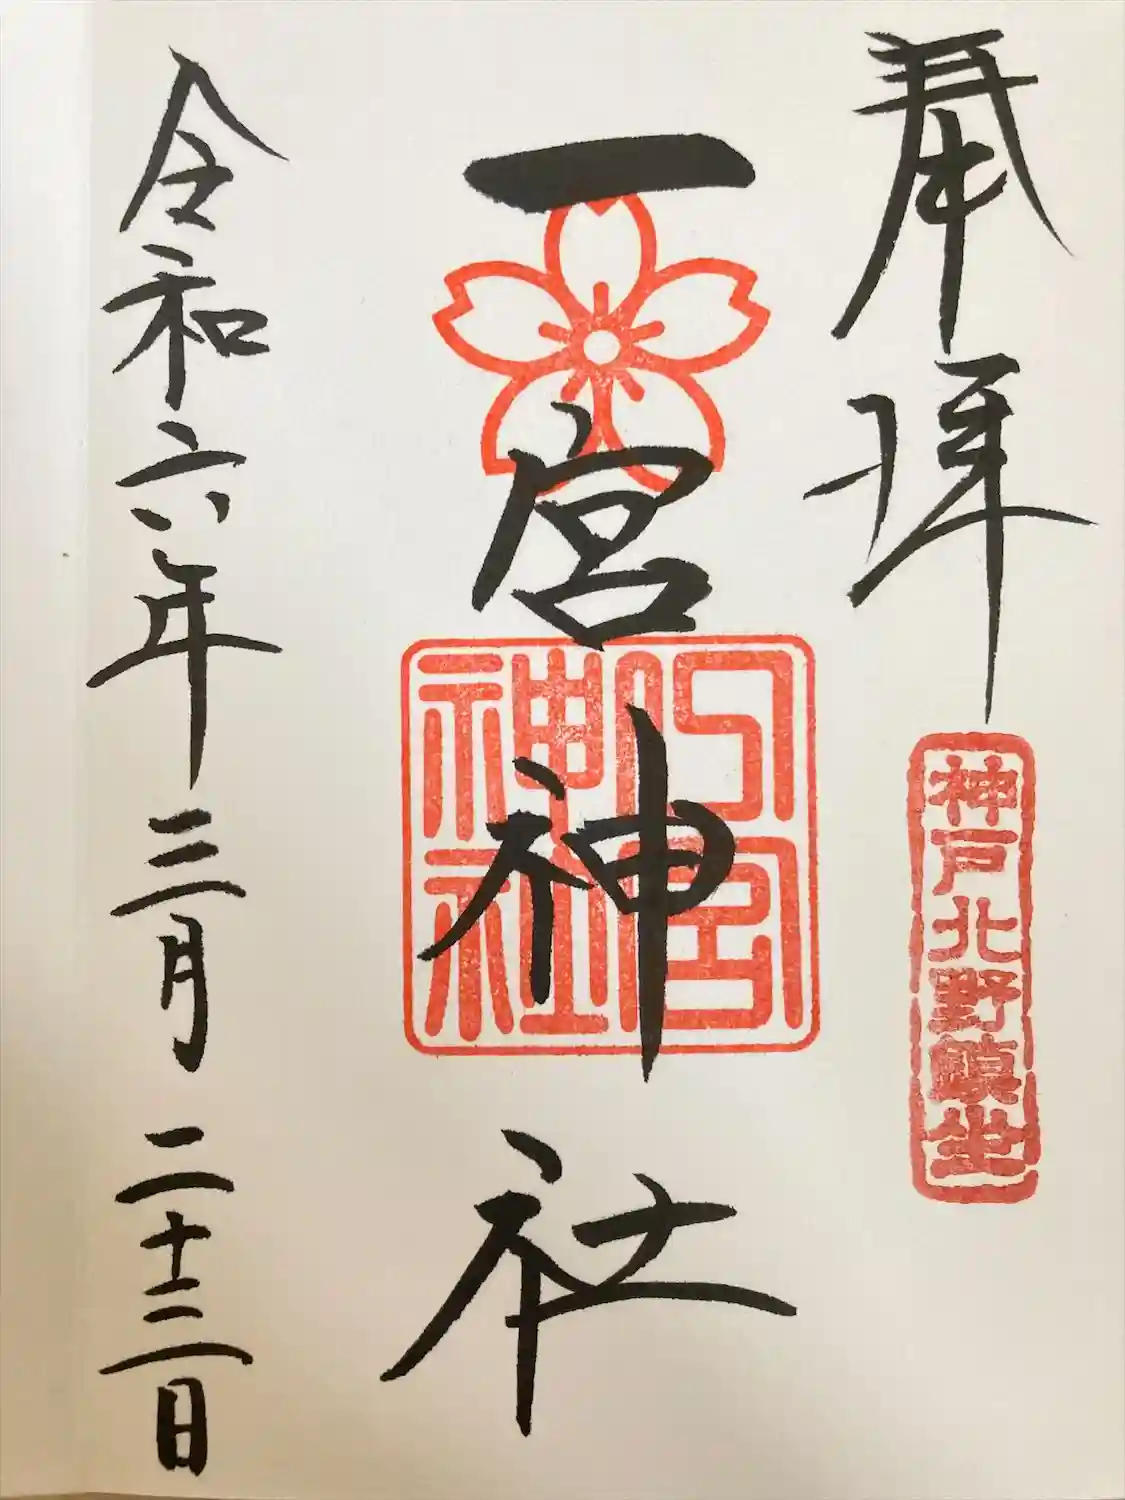 奉拝
神戸北野鎮坐
一宮神社
神社
令和六年三月二十三日